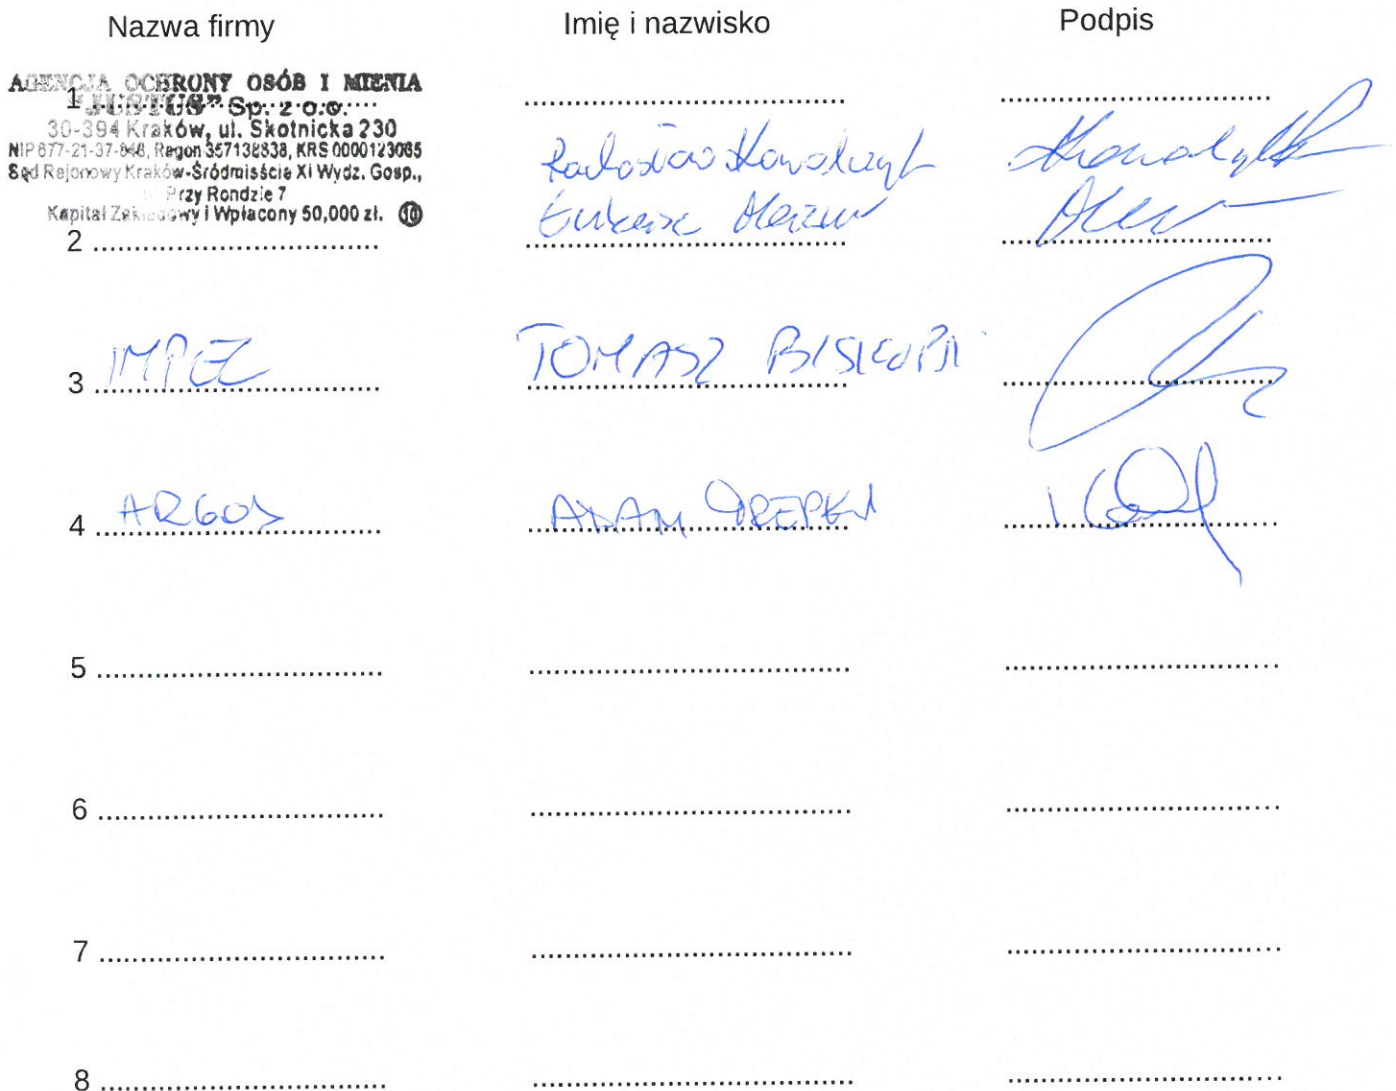 Nazwa firmy Imię i nazwisko Podpis
AGENCJA OCHRONY OSÓB I MIENIA
1 "JUSTUS" Sp. z o.o.
30-394 Kraków, ul. Skotnicka 230
NIP 677-21-37-848, Regon 357138838, KRS 0000123085
Sąd Rejonowy Kraków-Śródmieście XI Wydz. Gosp.,
Przy Rondzie 7
Kapitał Zakładowy i Wpłacony 50,000 zł. 10
Radosław Kowalczyk
Łukasz Mazur
2
3 IMPEL TOMASZ
4 ARGOS ADAM
5
6
7
8